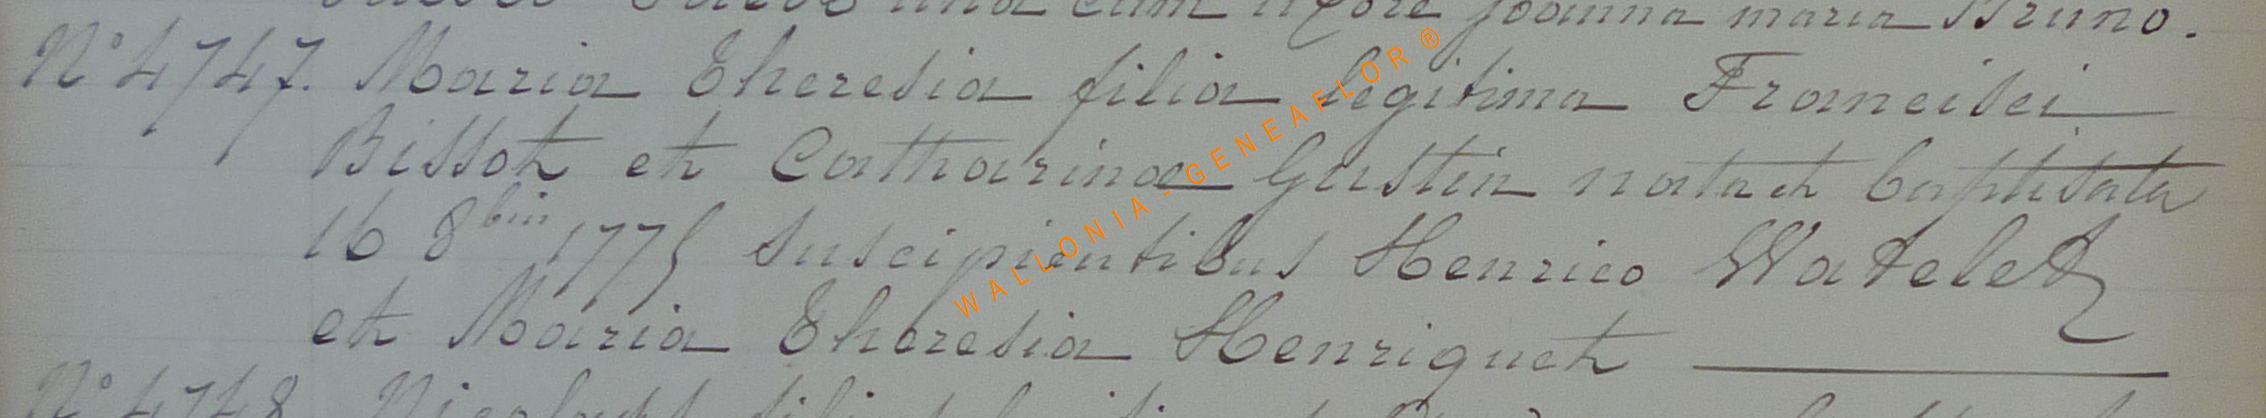 una cum uxore Joanna maria Bruno.
N° 4747. Maria Theresia filia legitima Francisci
Bissot et Catharinae Gustin nata et baptisata
16 8bris 1775 suscipientibus Henrico Watelet
et Maria Theresia Henriquet
N° 4748
WALLONIA-GENEAFLOR®